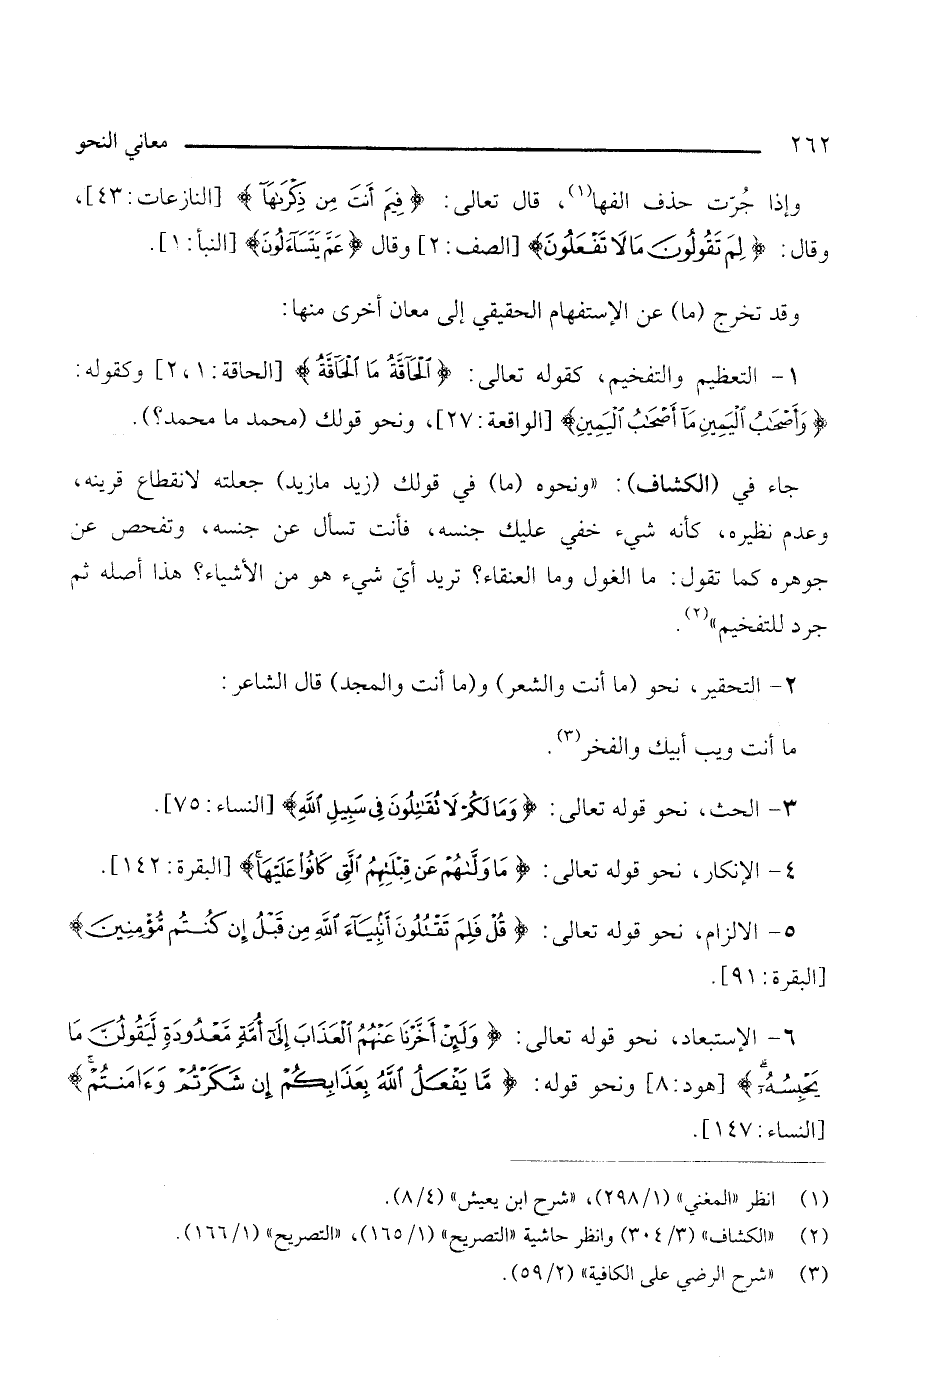 ٢٦٢ معاني النحو
وإذا جُرّت حذف الفها(١)، قال تعالى: ﴿ فِيمَ أَنتَ مِن ذِكْرَىٰهَآ ﴾ [النازعات:٤٣]،
وقال: ﴿ لِمَ تَقُولُونَ مَا لَا تَفْعَلُونَ﴾ [الصف:٢] وقال ﴿عَمَّ يَتَسَآءَلُونَ﴾ [النبأ:١].
وقد تخرج (ما) عن الإستفهام الحقيقي إلى معان أخرى منها:
١- التعظيم والتفخيم، كقوله تعالى: ﴿ ٱلْحَآقَّةُ مَا ٱلْحَآقَّةُ ﴾ [الحاقة:١،٢] وكقوله:
﴿ وَأَصْحَٰبُ ٱلْيَمِينِ مَآ أَصْحَٰبُ ٱلْيَمِينِ﴾ [الواقعة:٢٧]، ونحو قولك (محمد ما محمد؟).
جاء في (الكشاف): «ونحوه (ما) في قولك (زيد مازيد) جعلته لانقطاع قرينه،
وعدم نظيره، كأنه شيء خفي عليك جنسه، فأنت تسأل عن جنسه، وتفحص عن
جوهره كما تقول: ما الغول وما العنقاء؟ تريد أيّ شيء هو من الأشياء؟ هذا أصله ثم
جرد للتفخيم»(٢).
٢- التحقير، نحو (ما أنت والشعر) و(ما أنت والمجد) قال الشاعر:
ما أنت ويب أبيك والفخر(٣).
٣- الحث، نحو قوله تعالى: ﴿ وَمَا لَكُمْ لَا تُقَٰتِلُونَ فِى سَبِيلِ ٱللَّهِ﴾ [النساء:٧٥].
٤- الإنكار، نحو قوله تعالى: ﴿ مَا وَلَّىٰهُمْ عَن قِبْلَتِهِمُ ٱلَّتِى كَانُوا۟ عَلَيْهَا ۚ﴾ [البقرة:١٤٢].
٥- الالزام، نحو قوله تعالى: ﴿ قُلْ فَلِمَ تَقْتُلُونَ أَنۢبِيَآءَ ٱللَّهِ مِن قَبْلُ إِن كُنتُم مُّؤْمِنِينَ﴾
[البقرة:٩١].
٦- الإستبعاد، نحو قوله تعالى: ﴿ وَلَئِنْ أَخَّرْنَا عَنْهُمُ ٱلْعَذَابَ إِلَىٰٓ أُمَّةٍ مَّعْدُودَةٍ لَّيَقُولُنَّ مَا
يَحْبِسُهُۥٓ ۗ﴾ [هود:٨] ونحو قوله: ﴿ مَّا يَفْعَلُ ٱللَّهُ بِعَذَابِكُمْ إِن شَكَرْتُمْ وَءَامَنتُمْ ۚ﴾
[النساء:١٤٧].
(١) انظر «المغني» (٢٩٨/١)، «شرح ابن يعيش» (٨/٤).
(٢) «الكشاف» (٣٠٤/٣) وانظر حاشية «التصريح» (١٦٥/١)، «التصريح» (١٦٦/١).
(٣) «شرح الرضي على الكافية» (٥٩/٢).